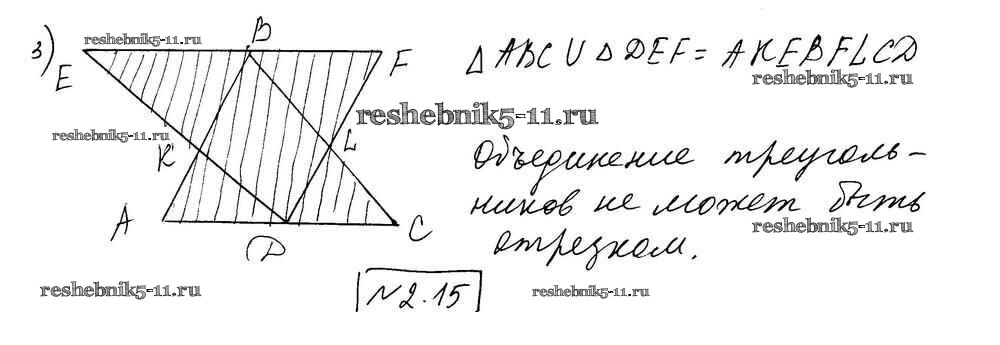 3)
E
B
F
reshebnik5-11.ru
△ ABC ∪ △ DEF = AKEBFLCD
reshebnik5-11.ru
reshebnik5-11.ru
reshebnik5-11.ru
K
L
Объединение треуголь-
ников не может быть
reshebnik5-11.ru
отрезком.
A
D
C
reshebnik5-11.ru
№2.15
reshebnik5-11.ru